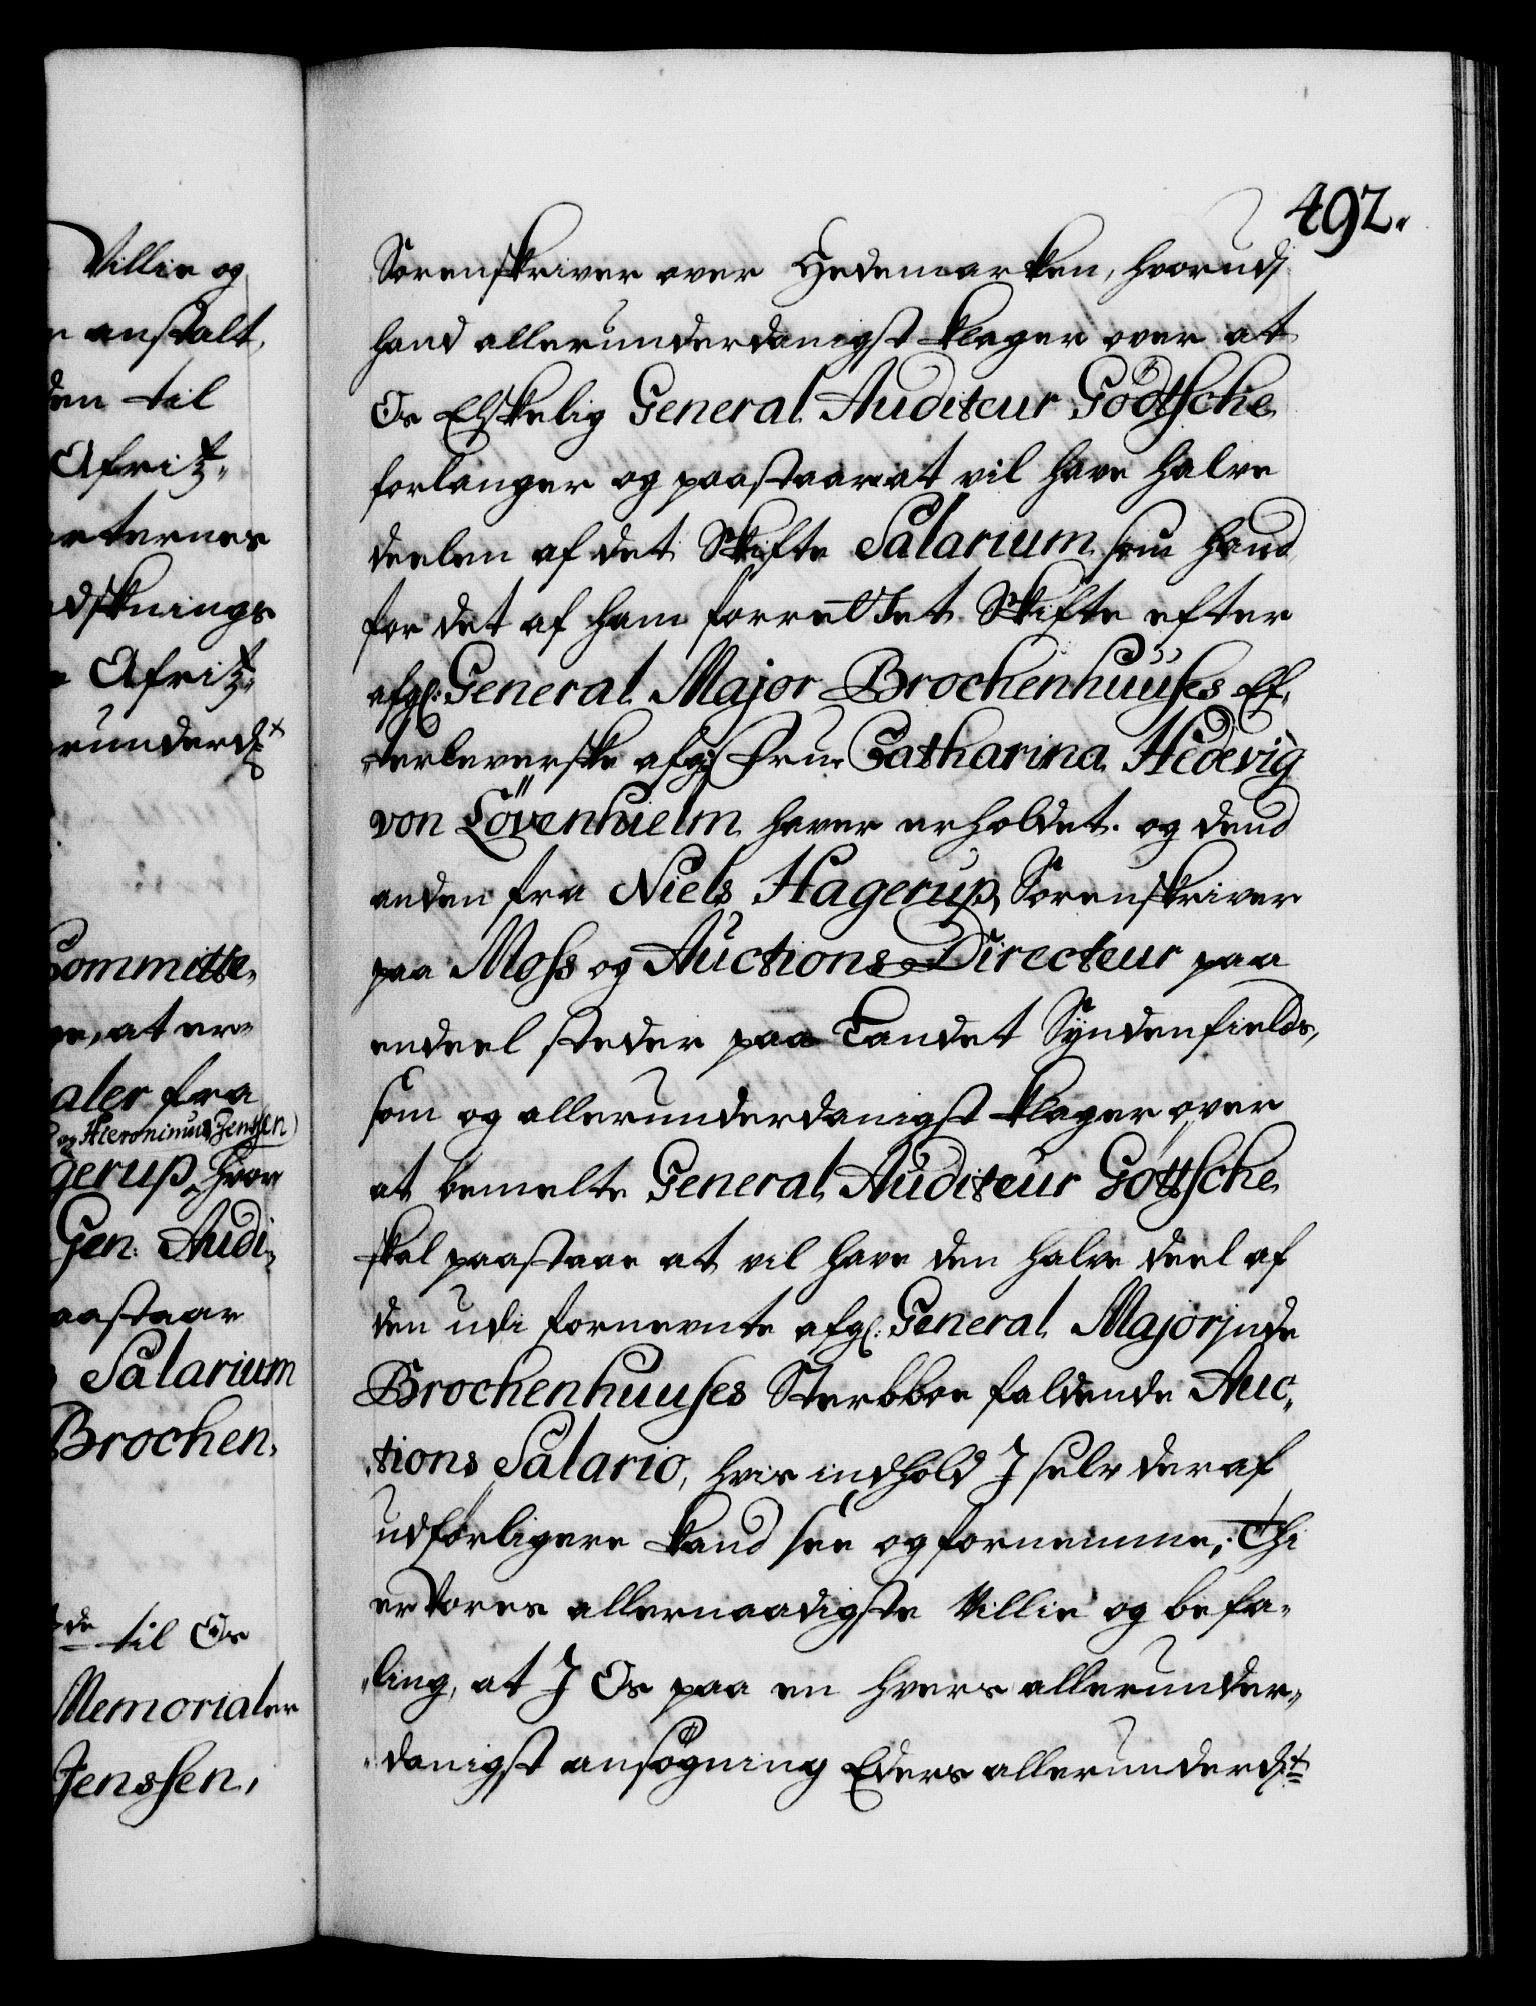 Villie og
anstalt,
den til
Afritz-
eternes
dskrnings
Afritz-
erunderd.t
Committe-
at er-
aler fra
og Hieronimus Jenssen)
gerup, hvor
Gen: Audi-
aastaar
Salarium
Brochen-
de til Os
Memorialer
Jenssen,
492.
Sorenskriver over Hedemarken, hvorudj
hand allerunderdanigst klager over at
Os Elskelig General Auditeur Gödtsche
forlanger og paastaar at vil have halve
deelen af det Skifte Salarium, som hand
for det af ham forrettet Skifte efter
afg: General Major Brochenhuuses Ef-
terleverske afg: Frue Catharina Hedevig
von Lövenhielm haver erholdet. og dend
anden fra Niels Hagerup, Sorenskriver
paa Moss og Auctions-Directeur paa
endeel steder paa Landet Syndenfields,
som og allerunderdanigst klager over
at bemelte General Auditeur Göttsche
skal paastaae at vil have den halve deel af
den udi fornevnte afg: General Majorinde
Brochenhuuses Sterbboe faldende Auc-
tions Salario, hvis indhold I selv deraf
udførligere kand see og fornemme; Thi
er Vores allernaadigste Villie og befa-
ling, at I Os paa en hvers allerunder-
danigst ansøgning Eders allerunderd:t